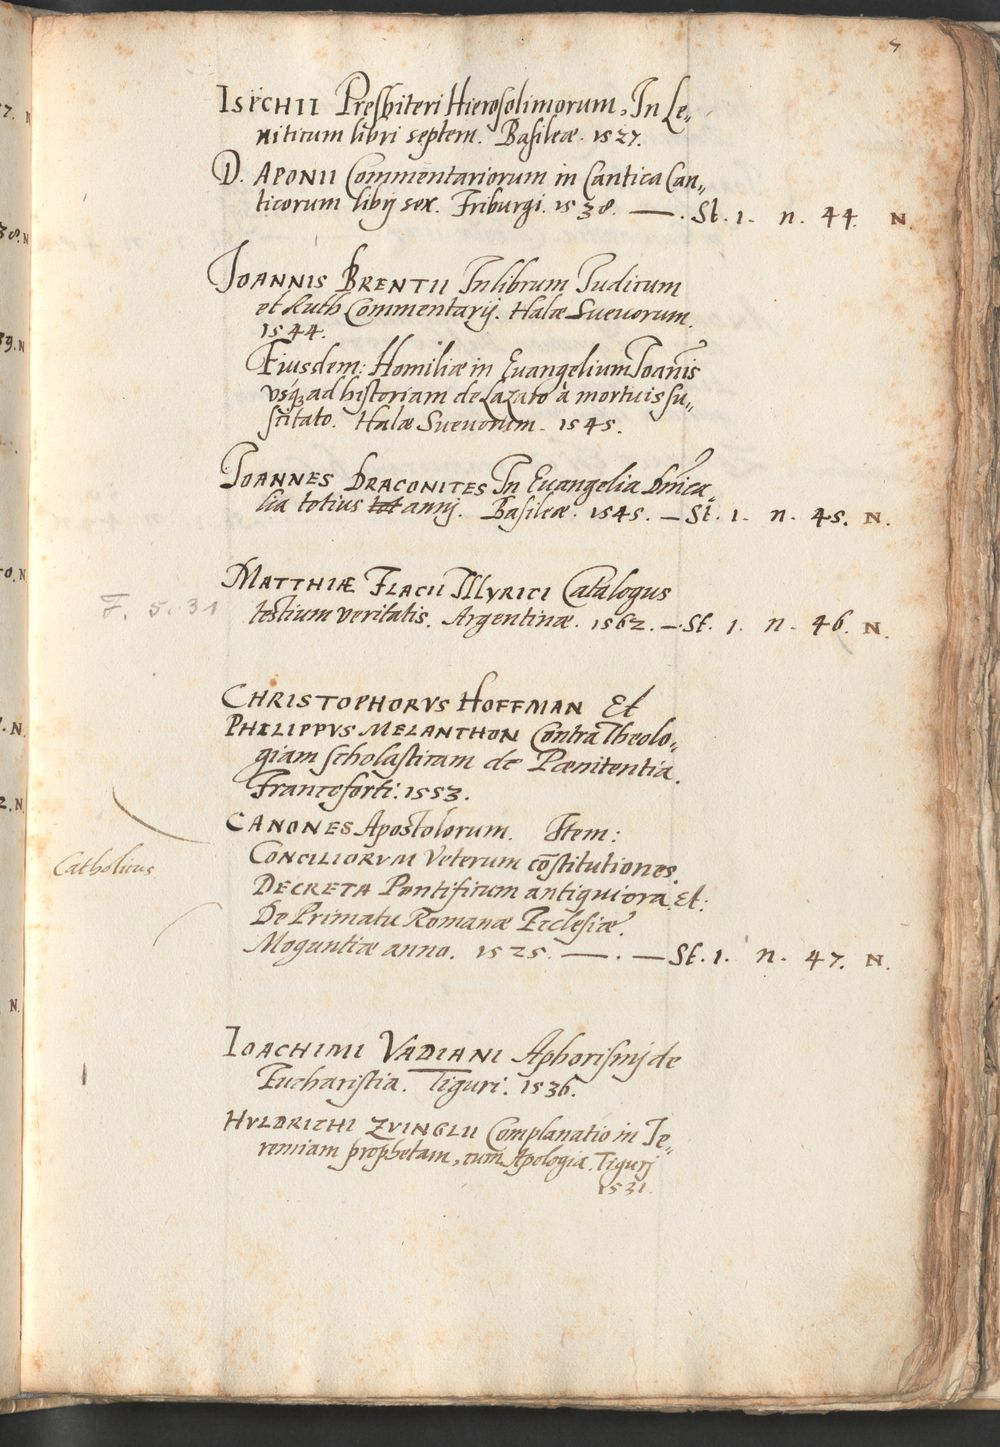 7
ISICHII Presbiteri Hierosolimorum, In Le„
uiticum libri septem. Basileæ. 1527.
D. APONII Commentariorum in Cantica Can„
ticorum librj sex. Friburgi. 1538. —. St. 1. n. 44. N.
IOANNIS BRENTII In librum Iudicum
et Ruth Commentarij. Halæ Sueuorum.
1544.
Eiusdem: Homiliæ in Euangelium Ioānis
vsq; ad historiam de Lazato à mortuis su„
scitato. Halæ Sueuorum. 1545.
IOANNES DRACONITES In Euangelia Dn̄ica„
lia totius tot annj. Basileæ. 1545. — St. 1. n. 45. N.
MATTHIÆ FLACII ILLYRICI Catalogus
F. 5. 31
testium veritatis. Argentinæ. 1562. —. St. 1. n. 46. N.
CHRISTOPHORVS HOFFMAN Et
PHILIPPVS MELANTHON Contra Theolo„
giam scholasticam de Pænitentia.
Francoforti. 1553.
CANONES Apostolorum. Item:
CONCILIORVM Veterum cōstitutiones.
Catholicus.
DECRETA Pontificum antiquiora. Et:
De Primatu Romanæ Ecclesiæ.
Moguntiæ anno. 1525. —. — St. 1. n. 47. N.
IOACHIMI VADIANI Aphorismj de
Eucharistia. Tiguri. 1536.
HVLDRICHI ZVINGLII Complanatio in Ie„
remiam prophetam, cum Apologia. Tigurj
1531.